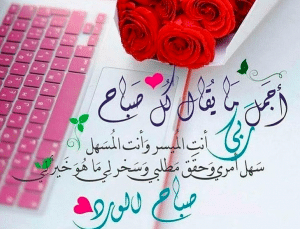 أجمل ما يقال كل صباح
ربي
أنت الميسر وأنت المسهل
سهل أمري وحقق مطلبي وسخر لي ما هو خير لي
صباح الورد